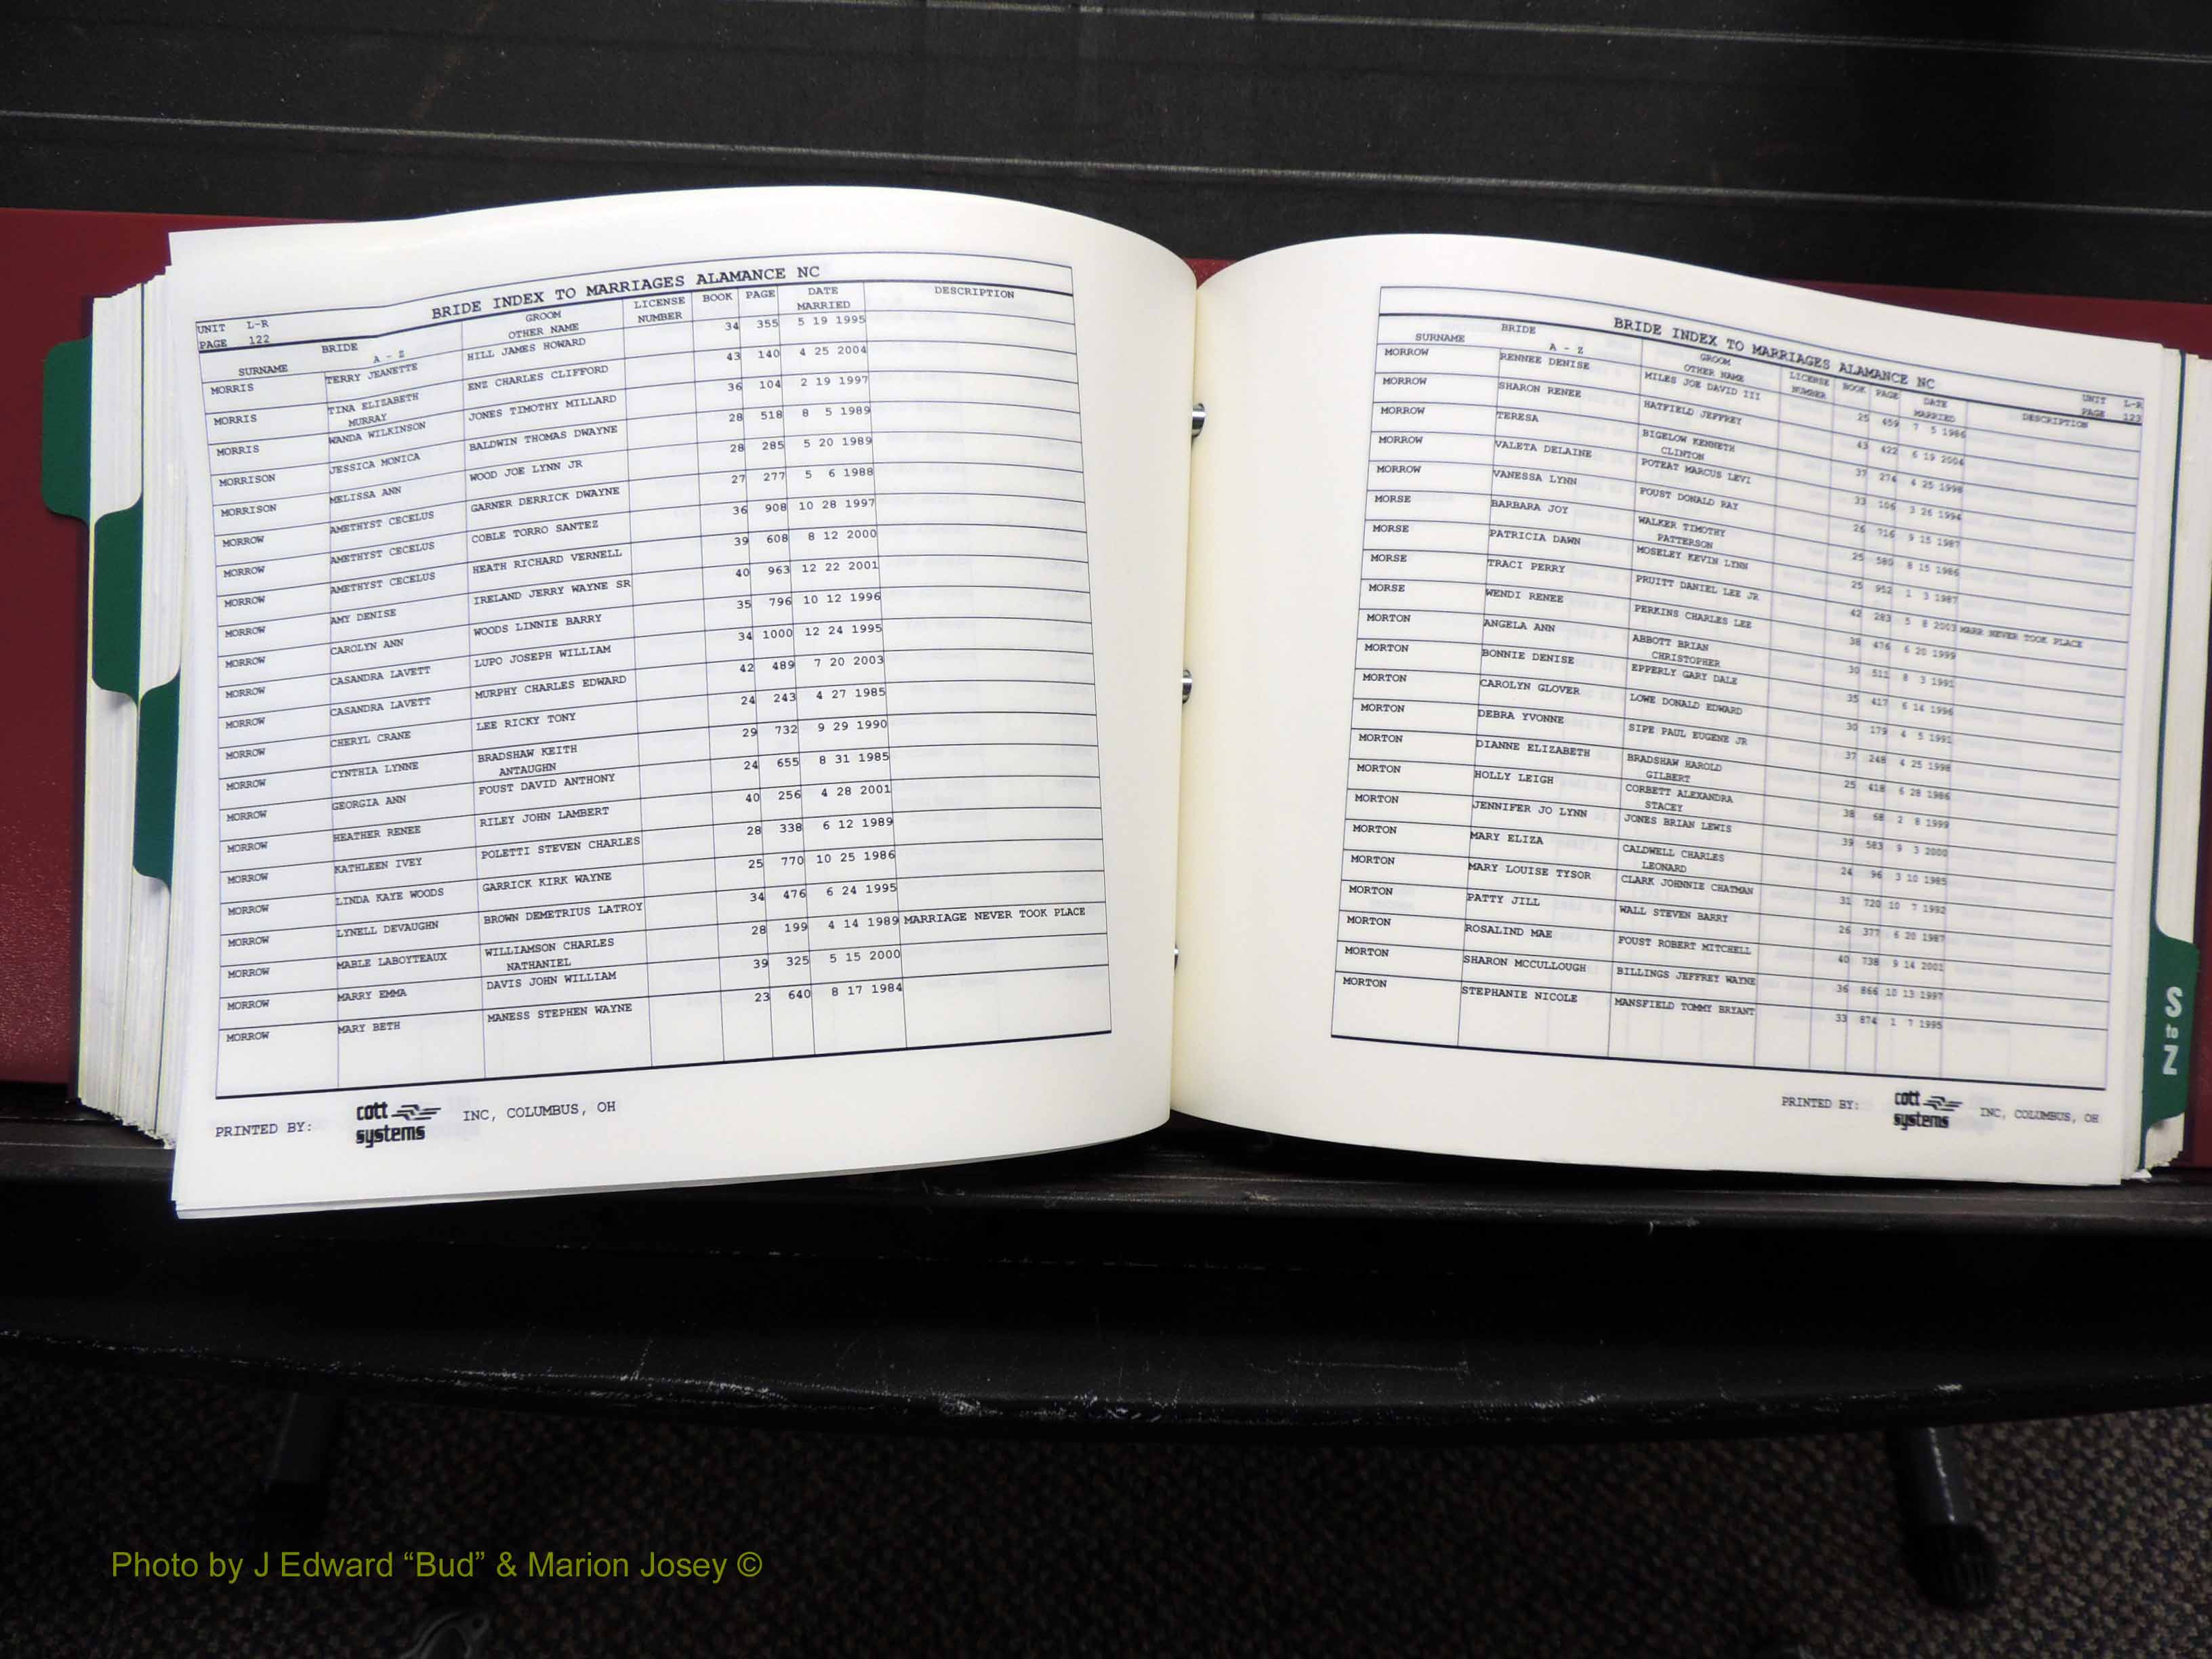 UNIT L-R
PAGE 122
BRIDE INDEX TO MARRIAGES ALAMANCE NC
BRIDE GROOM LICENSE BOOK PAGE DATE DESCRIPTION
SURNAME A - Z OTHER NAME NUMBER MARRIED
MORRIS TERRY JEANETTE HILL JAMES HOWARD 34 355 5 19 1995
MORRIS TINA ELIZABETH ENZ CHARLES CLIFFORD 43 140 4 25 2004
MURRAY
MORRIS WANDA WILKINSON JONES TIMOTHY MILLARD 36 104 2 19 1997
MORRISON JESSICA MONICA BALDWIN THOMAS DWAYNE 28 518 8 5 1989
MORRISON MELISSA ANN WOOD JOE LYNN JR 28 285 5 20 1989
MORROW AMETHYST CECELUS GARNER DERRICK DWAYNE 27 277 5 6 1988
MORROW AMETHYST CECELUS COBLE TORRO SANTEZ 36 908 10 28 1997
MORROW AMETHYST CECELUS HEATH RICHARD VERNELL 39 608 8 12 2000
MORROW AMY DENISE IRELAND JERRY WAYNE SR 40 963 12 22 2001
MORROW CAROLYN ANN WOODS LINNIE BARRY 35 796 10 12 1996
MORROW CASANDRA LAVETT LUPO JOSEPH WILLIAM 34 1000 12 24 1995
MORROW CASANDRA LAVETT MURPHY CHARLES EDWARD 42 489 7 20 2003
MORROW CHERYL CRANE LEE RICKY TONY 24 243 4 27 1985
MORROW CYNTHIA LYNNE BRADSHAW KEITH 29 732 9 29 1990
ANTAUGHN
MORROW GEORGIA ANN FOUST DAVID ANTHONY 24 655 8 31 1985
MORROW HEATHER RENEE RILEY JOHN LAMBERT 40 256 4 28 2001
MORROW KATHLEEN IVEY POLETTI STEVEN CHARLES 28 338 6 12 1989
MORROW LINDA KAYE WOODS GARRICK KIRK WAYNE 25 770 10 25 1986
MORROW LYNELL DEVAUGHN BROWN DEMETRIUS LATROY 34 476 6 24 1995
MORROW MABLE LABOYTEAUX WILLIAMSON CHARLES 28 199 4 14 1989 MARRIAGE NEVER TOOK PLACE
NATHANIEL
MORROW MARRY EMMA DAVIS JOHN WILLIAM 39 325 5 15 2000
MORROW MARY BETH MANESS STEPHEN WAYNE 23 640 8 17 1984
PRINTED BY: cott systems INC, COLUMBUS, OH
BRIDE INDEX TO MARRIAGES ALAMANCE NC
UNIT L-R
PAGE 123
BRIDE GROOM LICENSE BOOK PAGE DATE DESCRIPTION
SURNAME A - Z OTHER NAME NUMBER MARRIED
MORROW RENNEE DENISE MILES JOE DAVID III 25 459 7 5 1986
MORROW SHARON RENEE HATFIELD JEFFREY 43 422 6 19 2004
MORROW TERESA BIGELOW KENNETH 37 274 4 25 1998
CLINTON
MORROW VALETA DELAINE POTEAT MARCUS LEVI 33 106 3 26 1994
MORROW VANESSA LYNN FOUST DONALD RAY 26 716 9 15 1987
MORSE BARBARA JOY WALKER TIMOTHY 25 580 8 15 1986
PATTERSON
MORSE PATRICIA DAWN MOSELEY KEVIN LYNN 25 952 1 3 1987
MORSE TRACI PERRY PRUITT DANIEL LEE JR 42 283 5 8 2003 MARR NEVER TOOK PLACE
MORSE WENDI RENEE PERKINS CHARLES LEE 38 476 6 20 1999
MORTON ANGELA ANN ABBOTT BRIAN 30 511 8 3 1991
CHRISTOPHER
MORTON BONNIE DENISE EPPERLY GARY DALE 35 417 6 14 1996
MORTON CAROLYN GLOVER LOWE DONALD EDWARD 30 179 4 5 1991
MORTON DEBRA YVONNE SIPE PAUL EUGENE JR 37 248 4 25 1998
MORTON DIANNE ELIZABETH BRADSHAW HAROLD 25 418 6 28 1986
GILBERT
MORTON HOLLY LEIGH CORBETT ALEXANDRA 38 68 2 8 1999
STACEY
MORTON JENNIFER JO LYNN JONES BRIAN LEWIS 39 583 9 3 2000
MORTON MARY ELIZA CALDWELL CHARLES 24 96 3 10 1985
LEONARD
MORTON MARY LOUISE TYSOR CLARK JOHNNIE CHATMAN 31 720 10 7 1992
MORTON PATTY JILL WALL STEVEN BARRY 26 377 6 20 1987
MORTON ROSALIND MAE FOUST ROBERT MITCHELL 40 738 9 14 2001
MORTON SHARON MCCULLOUGH BILLINGS JEFFREY WAYNE 36 866 10 13 1997
MORTON STEPHANIE NICOLE MANSFIELD TOMMY BRYANT 33 874 1 7 1995
PRINTED BY: cott systems INC, COLUMBUS, OH
S
to
Z
Photo by J Edward “Bud” & Marion Josey ©